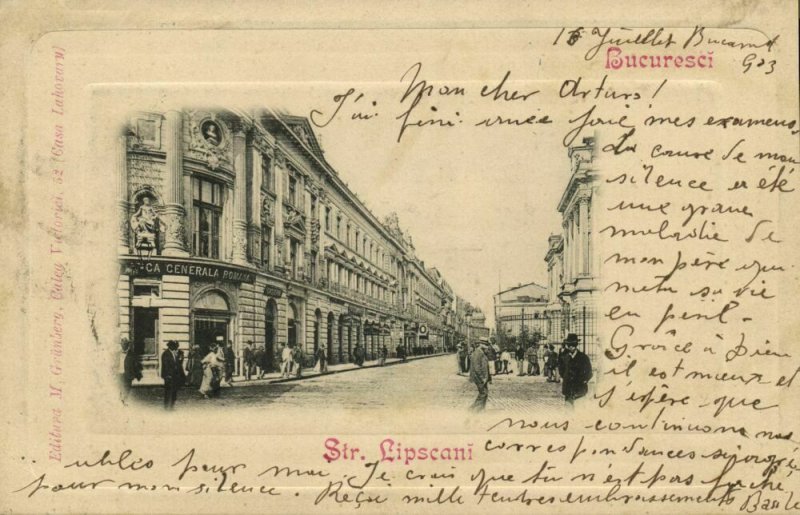 15 Juillet Bucarest
903
Bucuresci
Mon cher Arturo!
J'ai fini avec joie mes examens,
La cause de mon
silence a été
une grave
maladie de
mon père qui
metu sa vie
en péril.
Grâce à Dieu
il est mieux et
j'espère que
nous continuons nos
correspondances
oubliés pour moi. Je crois que tu n'est pas faché
pour mon silence. Reçoi mille tendres embrassements
Editura M. Grünberg, Calea Victoriei, 52 (Casa Lahovary)
CA GENERALA ROMANA
Str. Lipscani